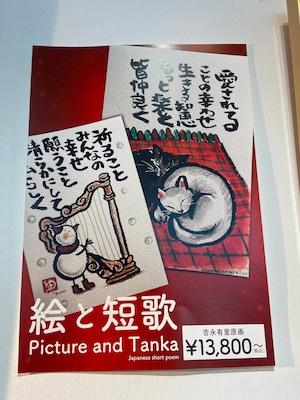 愛される
ことの幸わせ
生きる知恵
もっと髪と
皆仲良く
祈ること
みんなの
幸せ
願うこと
清らかにして
ゆ
絵と短歌
Picture and Tanka
Japanese short poem
吉永有里原画
¥13,800〜
(税込)